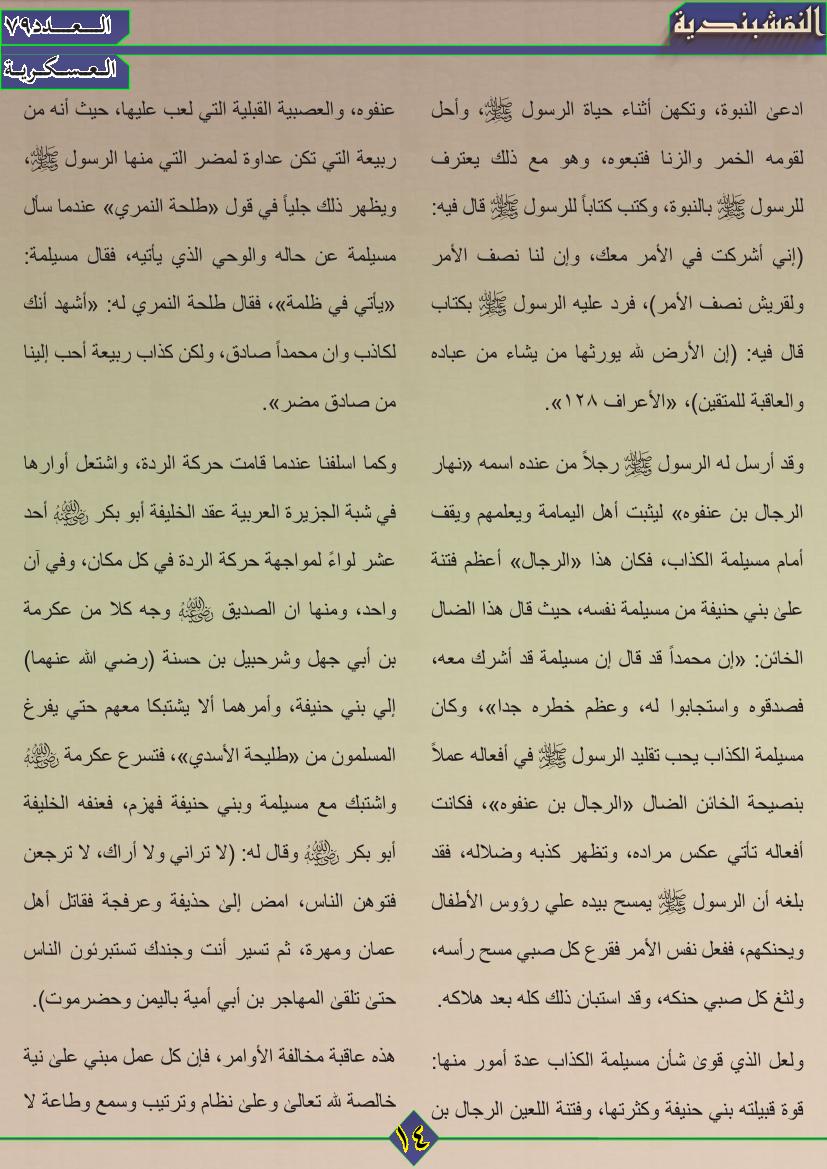 النقشبندية
العدد ٧٩
العسكرية
ادعىٰ النبوة، وتكهن أثناء حياة الرسول ﷺ، وأحل
لقومه الخمر والزنا فتبعوه، وهو مع ذلك يعترف
للرسول ﷺ بالنبوة، وكتب كتاباً للرسول ﷺ قال فيه:
(إني أشركت في الأمر معك، وإن لنا نصف الأمر
ولقريش نصف الأمر)، فرد عليه الرسول ﷺ بكتاب
قال فيه: (إن الأرض لله يورثها من يشاء من عباده
والعاقبة للمتقين)، «الأعراف ١٢٨».
وقد أرسل له الرسول ﷺ رجلاً من عنده اسمه «نهار
الرجال بن عنفوه» ليثبت أهل اليمامة ويعلمهم ويقف
أمام مسيلمة الكذاب، فكان هذا «الرجال» أعظم فتنة
علىٰ بني حنيفة من مسيلمة نفسه، حيث قال هذا الضال
الخائن: «إن محمداً قد قال إن مسيلمة قد أشرك معه،
فصدقوه واستجابوا له، وعظم خطره جدا»، وكان
مسيلمة الكذاب يحب تقليد الرسول ﷺ في أفعاله عملاً
بنصيحة الخائن الضال «الرجال بن عنفوه»، فكانت
أفعاله تأتي عكس مراده، وتظهر كذبه وضلاله، فقد
بلغه أن الرسول ﷺ يمسح بيده علي رؤوس الأطفال
ويحنكهم، ففعل نفس الأمر فقرع كل صبي مسح رأسه،
ولثغ كل صبي حنكه، وقد استبان ذلك كله بعد هلاكه.
ولعل الذي قوىٰ شأن مسيلمة الكذاب عدة أمور منها:
قوة قبيلته بني حنيفة وكثرتها، وفتنة اللعين الرجال بن
عنفوه، والعصبية القبلية التي لعب عليها، حيث أنه من
ربيعة التي تكن عداوة لمضر التي منها الرسول ﷺ،
ويظهر ذلك جلياً في قول «طلحة النمري» عندما سأل
مسيلمة عن حاله والوحي الذي يأتيه، فقال مسيلمة:
«يأتي في ظلمة»، فقال طلحة النمري له: «أشهد أنك
لكاذب وان محمداً صادق، ولكن كذاب ربيعة أحب إلينا
من صادق مضر».
وكما اسلفنا عندما قامت حركة الردة، واشتعل أوارها
في شبة الجزيرة العربية عقد الخليفة أبو بكر رضي الله عنه أحد
عشر لواءً لمواجهة حركة الردة في كل مكان، وفي آن
واحد، ومنها ان الصديق رضي الله عنه وجه كلا من عكرمة
بن أبي جهل وشرحبيل بن حسنة (رضي الله عنهما)
إلي بني حنيفة، وأمرهما ألا يشتبكا معهم حتي يفرغ
المسلمون من «طليحة الأسدي»، فتسرع عكرمة رضي الله عنه
واشتبك مع مسيلمة وبني حنيفة فهزم، فعنفه الخليفة
أبو بكر رضي الله عنه وقال له: (لا تراني ولا أراك، لا ترجعن
فتوهن الناس، امض إلىٰ حذيفة وعرفجة فقاتل أهل
عمان ومهرة، ثم تسير أنت وجندك تستبرئون الناس
حتىٰ تلقىٰ المهاجر بن أبي أمية باليمن وحضرموت).
هذه عاقبة مخالفة الأوامر، فإن كل عمل مبني علىٰ نية
خالصة لله تعالىٰ وعلىٰ نظام وترتيب وسمع وطاعة لا
١٤